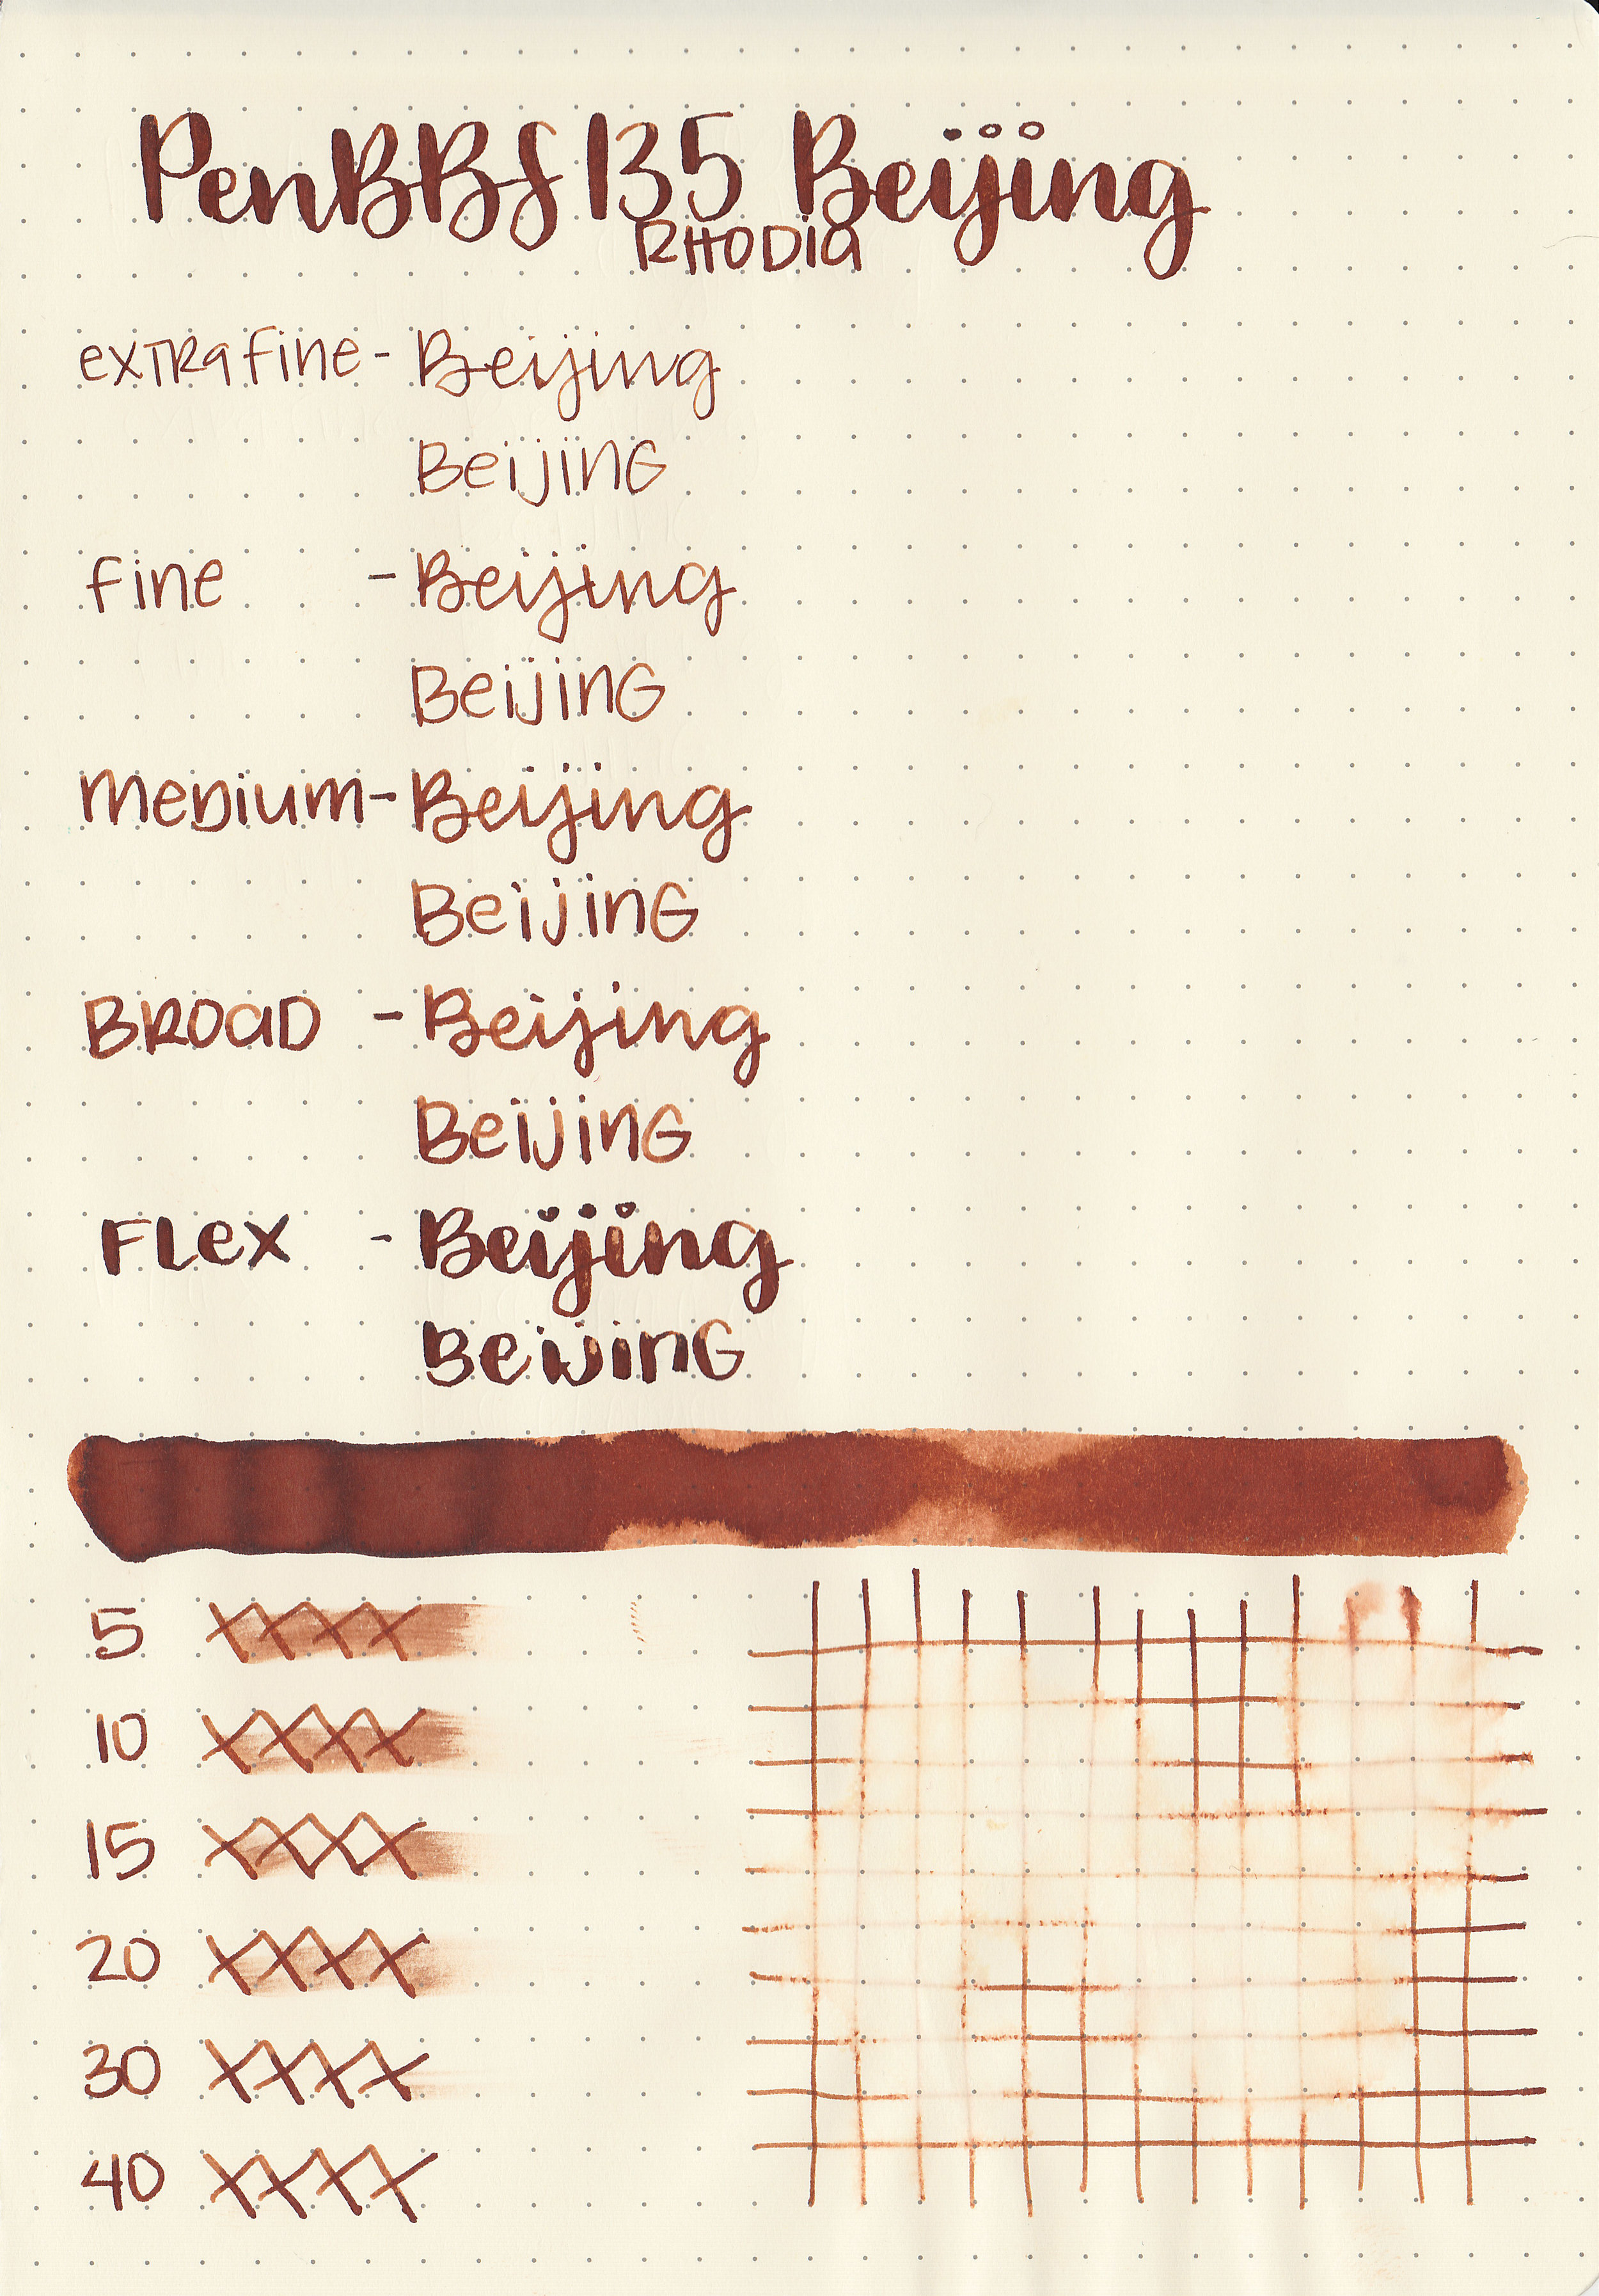 PenBBS 135 Beijing
RHODIA
extra fine - Beijing
BeijinG
fine - Beijing
BeijinG
meDium - Beijing
BeijinG
BROaD - Beijing
BeijinG
FLex - Beijing
BeijinG
5 XXXX
10 XXXX
15 XXXX
20 XXXX
30 XXXX
40 XXXX